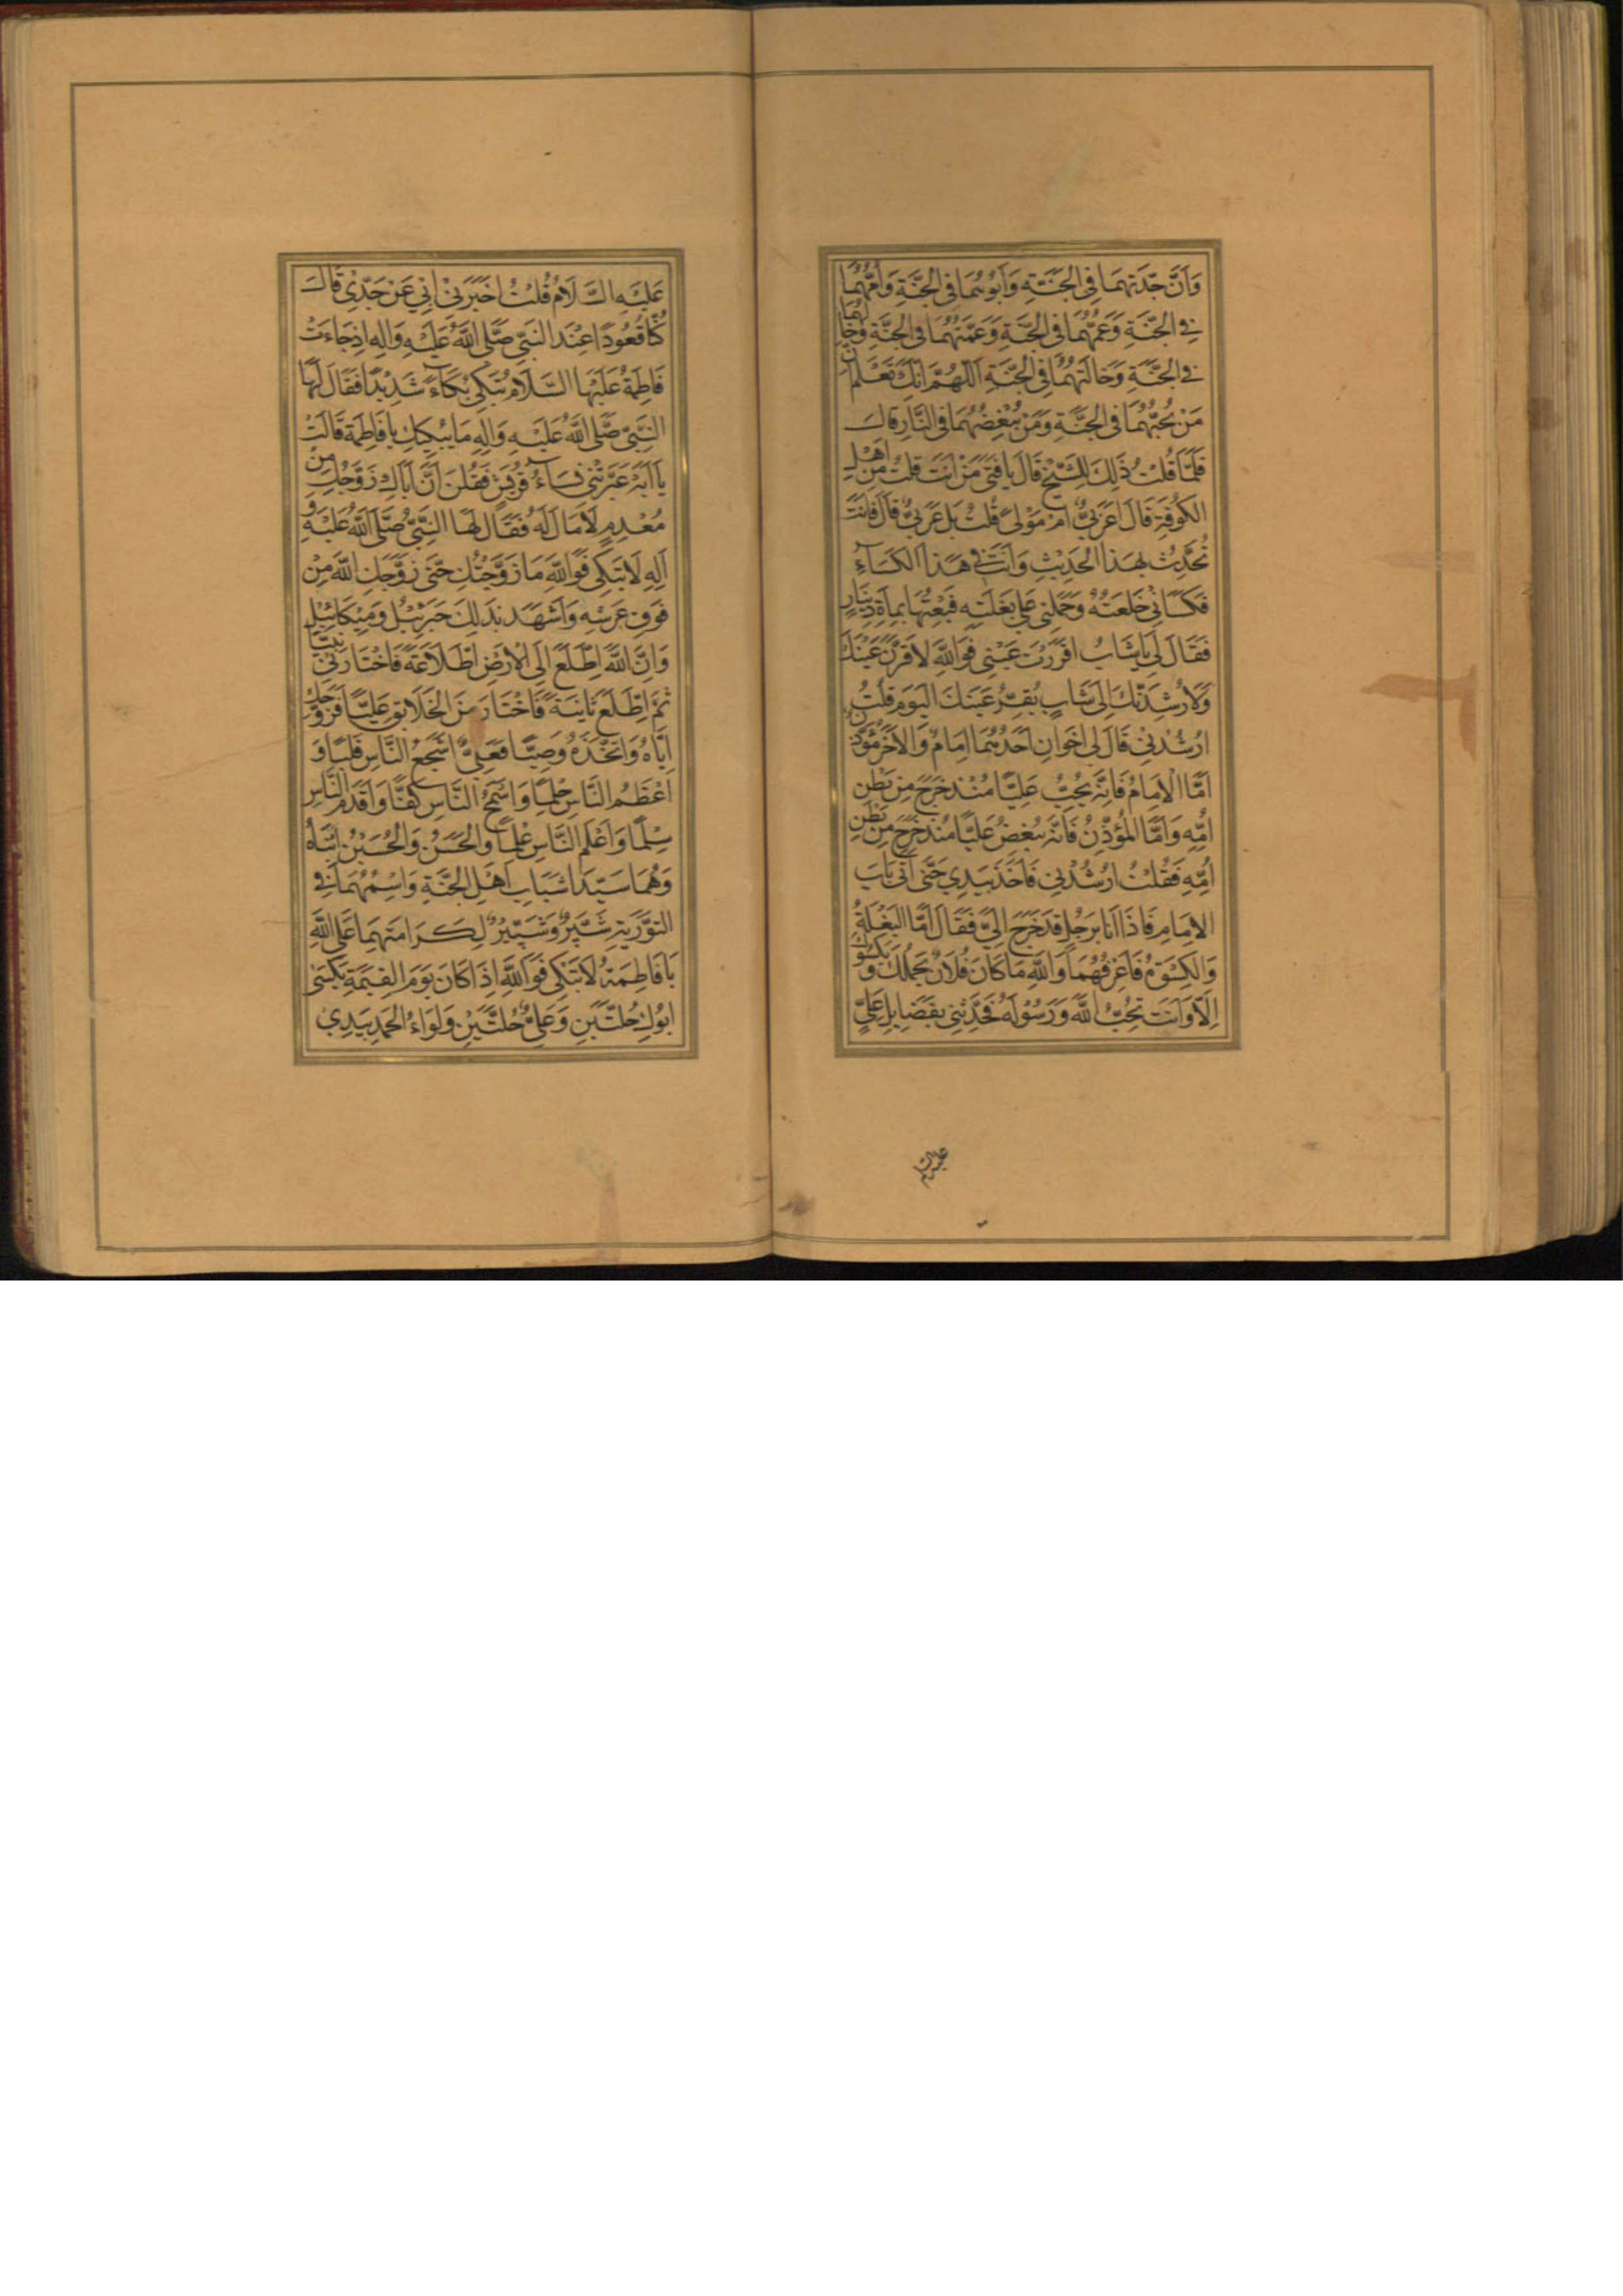 وَاَنَّ جَدَّتَهُمَا فِي الجَنَّةِ وَاَبُوهُمَا فِي الجَنَّةِ وَاُمُّهُمَا
فِي الجَنَّةِ وَعَمُّهُمَا فِي الجَنَّةِ وَعَمَّتُهُمَا فِي الجَنَّةِ وَخالُهُما
فِي الجَنَّةِ وَخَالَتُهُمَا فِي الجَنَّةِ اَللّهُمَّ اِنَّكَ تَعْلَمُ اَنَّ
مَنْ يُحِبُّهُمَا فِي الجَنَّةِ وَمَنْ يُبْغِضُهُمَا فِي النَّارِ قَالَ
فَلَمَّا قُلْتُ ذَلِكَ لِلشَّيْخِ قَالَ يَا فَتَى مَنْ اَنْتَ قُلْتُ مِنْ اَهْلِ
الكُوفَةِ قَالَ اَعَرَبِيٌّ اَمْ مَوْلىً قُلْتُ بَلْ عَرَبِيٌّ قَالَ فَاَنْتَ
تُحَدِّثُ بِهَذَا الحَدِيْثِ وَاَنْتَ فِي هَذَا الكِسَاءِ
فَكَسَانِيْ خِلْعَتَهُ وَحَمَلَنِي عَلَى بَغْلَتِهِ فَبِعْتُهَا بِمِاَةِ دِيْنَارٍ
فَقَالَ لِي يَا شَابُ اَقْرَرْتَ عَيْنِي فَوَاللهِ لَاُقِرَّنَّ عَيْنَكَ
وَلَاُرْشِدَنَّكَ اِلَى شَابٍ يُقِرُّ عَيْنَكَ اليَوْمَ قُلْتُ
اَرْشِدْنِي قَالَ لِي اَخَوَانِ اَحَدُهُمَا اِمَامٌ وَالآخَرُ مُؤَذِّنٌ
اَمَّا الاِمَامُ فَاِنَّهُ يُحِبُّ عَلِيًّا مُنْذُ خَرَجَ مِنْ بَطْنِ
اُمِّهِ وَاَمَّا المُؤَذِّنُ فَاِنَّهُ يُبْغِضُ عَلِيًّا مُنْذُ خَرَجَ مِنْ بَطْنِ
اُمِّهِ فَقُلْتُ اَرْشِدْنِي فَاَخَذَ بِيَدِي حَتَّى اَتَى بَابَ
الاِمَامِ فَاِذَا اَنَا بِرَجُلٍ قَدْ خَرَجَ اِلَيَّ فَقَالَ اَمَّا البَغْلَةُ
وَالكِسْوَةُ فَاَعْرِفُهُمَا وَاللهِ مَا كَانَ فُلَانٌ يَحْمِلُكَ وَ يَكْسُوْكَ
اِلَّا وَاَنْتَ تُحِبُّ اللهَ وَرَسُوْلَهُ فَحَدِّثْنِي بِفَضَايِلِ عَلِيٍّ
عَلَيْهِ السَّلَامُ قُلْتُ اَخْبَرَنِيْ اَبِي عَنْ جَدِّيْ قَالَ
كُنَّا قُعُوْدًا عِنْدَ النَّبِيِّ صَلَّى اللهُ عَلَيْهِ وَآلِهِ اِذْ جَاءَتْ
فَاطِمَةُ عَلَيْهَا السَّلَامُ تَبْكِي بُكَاءً شَدِيْدًا فَقَالَ لَهَا
النَّبِيُّ صَلَّى اللهُ عَلَيْهِ وَآلِهِ مَا يُبْكِيْكِ يَا فَاطِمَةُ قَالَتْ
يَا اَبَهْ عَيَّرَتْنِي نِسَاءُ قُرَيْشٍ فَقُلْنَ اَنَّ اَبَاكِ زَوَّجَكِ مِنْ
مُعْدِمٍ لَا مَالَ لَهُ فَقَالَ لَهَا النَّبِيُّ صَلَّى اللهُ عَلَيْهِ وَ
آلِهِ لَا تَبْكِي فَوَاللهِ مَا زَوَّجْتُكِ حَتَّى زَوَّجَكِ اللهُ مِنْ
فَوْقِ عَرْشِهِ وَاَشْهَدَ بِذَلِكَ جَبْرَئِيْلَ وَمِيْكَائِيْلَ
وَاِنَّ اللهَ اِطَّلَعَ اِلَى الاَرْضِ اِطِّلَاعَةً فَاخْتَارَنِيْ نَبِيًّا
ثُمَّ اِطَّلَعَ ثَانِيَةً فَاخْتَارَ مِنَ الخَلَايِقِ عَلِيًّا فَزَوَّجَكِ
اِيَّاهُ وَاتَّخَذَهُ وَصِيًّا فَعَلِيٌّ اَشْجَعُ النَّاسِ قَلْبًا وَ
اَعْظَمُ النَّاسِ حِلْمًا وَاَسْمَحُ النَّاسِ كَفًّا وَاَقْدَمُ النَّاسِ
سِلْمًا وَاَعْلَمُ النَّاسِ عِلْمًا وَالحَسَنُ وَالحُسَيْنُ ابْنَاهُ
وَهُمَا سَيِّدَا شَبَابِ اَهْلِ الجَنَّةِ وَاسْمُهُمَا فِي
التَّوْرَيةِ شَبَّرٌ وَشَبِيْرٌ لِكَرَامَتِهِمَا عَلَى اللهِ
يَا فَاطِمَةُ لَا تَبْكِي فَوَاللهِ اِذَا كَانَ يَوْمَ القِيمَةِ يُكْسَى
اَبُوْكِ حُلَّتَيْنِ وَعَلِيٌّ حُلَّتَيْنِ وَلِوَاءُ الحَمْدِ بِيَدِيْ